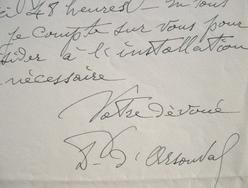 48 heures — 
je compte sur vous pour
sider à l'installation
nécessaire
Votre dévoué
Dr d'Arsonval